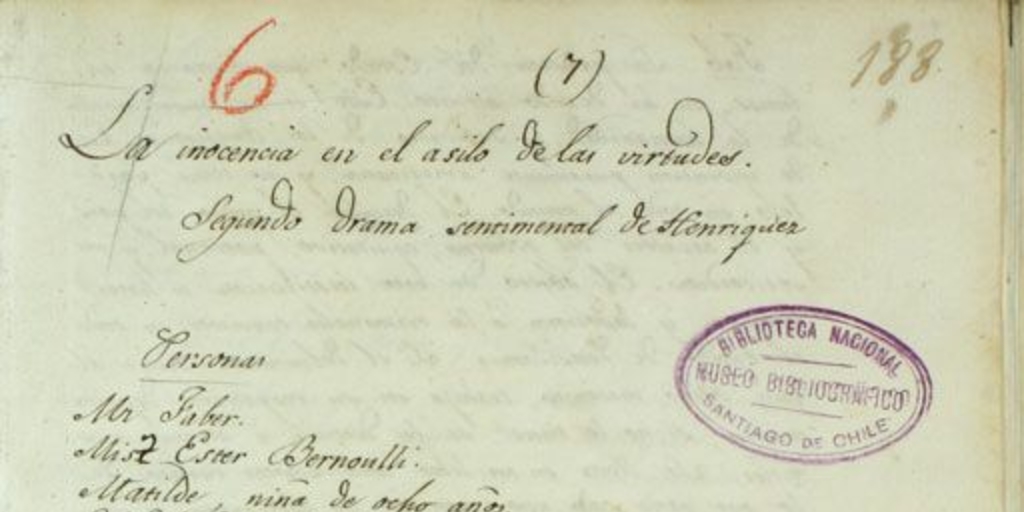 6
(7)
188.
La inocencia en el asilo de las virtudes.
Segundo drama sentimental de Henriquez
Personas
BIBLIOTECA NACIONAL
MUSEO BIBLIOGRAFICO
SANTIAGO DE CHILE
Mr Faber.
Mis Ester Bernoulli.
Matilde, niña de ocho años